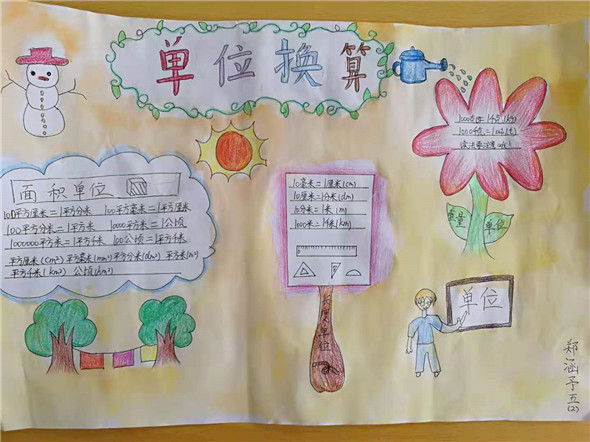 单位换算
面积单位
100平方厘米=1平方分米 100平方毫米=1平方厘米
100平方分米=1平方米 10000平方米=1公顷
1000000平方米=1平方千米 100公顷=1平方千米
平方厘米(cm²)平方毫米(mm²)平方分米(dm²) 平方米(m²)
平方千米(km²) 公顷(hm²)
10毫米=1厘米(cm)
10厘米=1分米(dm)
10分米=1米(m)
1000米=1千米(km)
长度单位
1000克=1千克(kg)
1000千克=1吨(t)
质量
单位
单位
郑涵予 五(2)